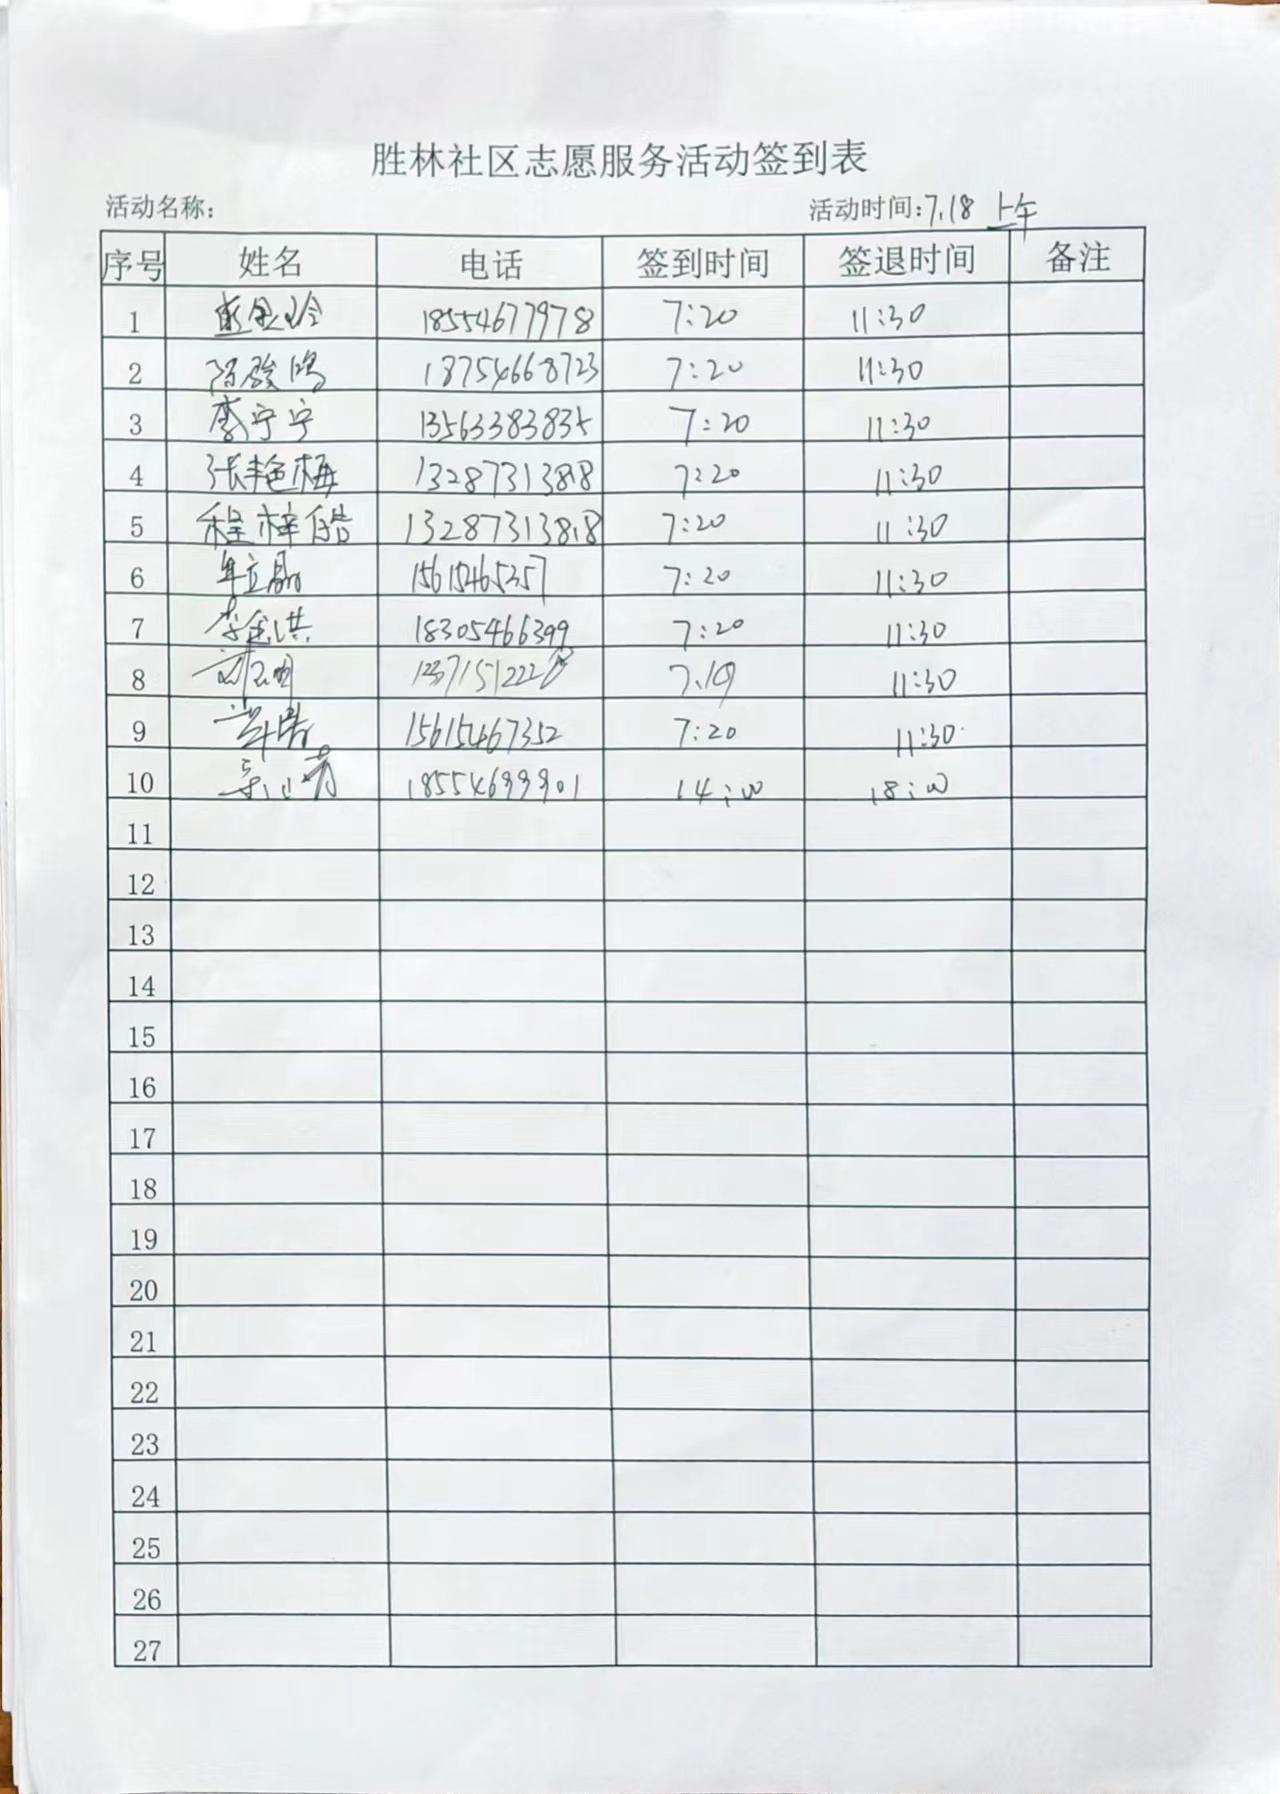 胜林社区志愿服务活动签到表
活动名称： 活动时间:7.18 上午
序号 姓名 电话 签到时间 签退时间 备注
1 18554677978 7:20 11:30
2 陈骏鸿 18754668723 7:20 11:30
3 李宁宁 13563383835 7:20 11:30
4 张艳梅 13287313818 7:20 11:30
5 程梓皓 13287313818 7:20 11:30
6 15615465357 7:20 11:30
7 李金洪 18305466399 7:20 11:30
8 7.19 11:30
9 15615467352 7:20 11:30
10 18554699901 14:00 18:00
11
12
13
14
15
16
17
18
19
20
21
22
23
24
25
26
27